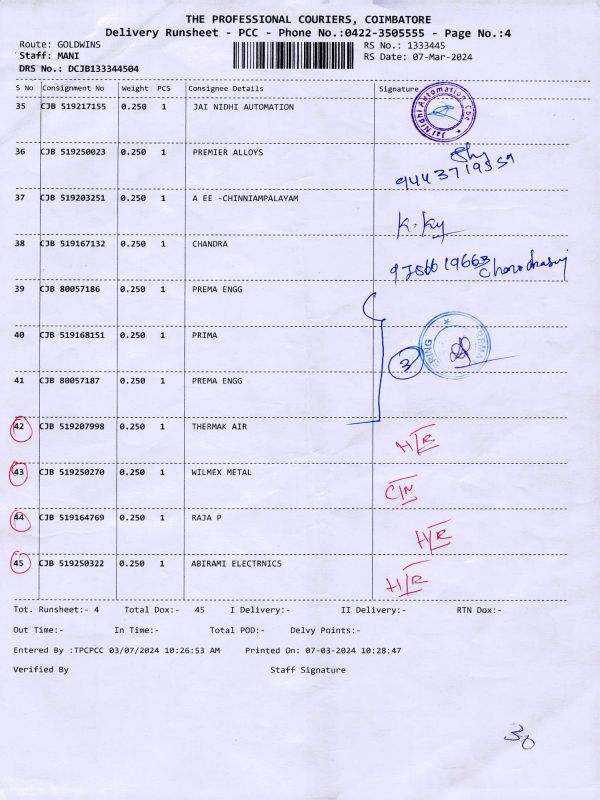 THE PROFESSIONAL COURIERS, COIMBATORE
Delivery Runsheet - PCC - Phone No.:0422-3505555 - Page No.:4
Route: GOLDWINS RS No.: 1333445
Staff: MANI RS Date: 07-Mar-2024
DRS No.: DCJB133344504
S No Consignment No Weight PCS Consignee Details Signature
35 CJB 519217155 0.250 1 JAI NIDHI AUTOMATION
Jai Nidhi Automation Cbe
36 CJB 519250023 0.250 1 PREMIER ALLOYS
37 CJB 519203251 0.250 1 A EE -CHINNIAMPALAYAM
38 CJB 519167132 0.250 1 CHANDRA
39 CJB 80057186 0.250 1 PREMA ENGG
40 CJB 519168151 0.250 1 PRIMA
3
41 CJB 80057187 0.250 1 PREMA ENGG
42 CJB 519207998 0.250 1 THERMAK AIR
43 CJB 519250270 0.250 1 WILMEX METAL
44 CJB 519164769 0.250 1 RAJA P
45 CJB 519250322 0.250 1 ABIRAMI ELECTRNICS
Tot. Runsheet:- 4 Total Dox:- 45 I Delivery:- II Delivery:- RTN Dox:-
Out Time:- In Time:- Total POD:- Delvy Points:-
Entered By :TPCPCC 03/07/2024 10:26:53 AM Printed On: 07-03-2024 10:28:47
Verified By Staff Signature